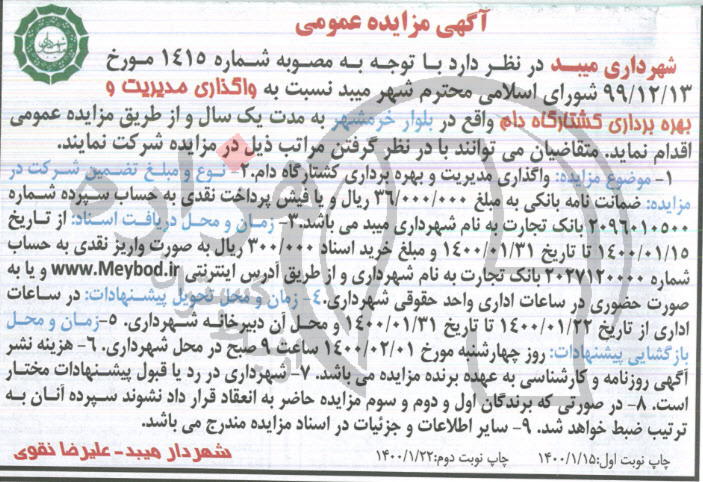 آگهی مزایده عمومی
شهرداری میبد در نظر دارد با توجه به مصوبه شماره ۱۴۱۵ مورخ
۹۹/۱۲/۱۳ شورای اسلامی محترم شهر میبد نسبت به واگذاری مدیریت و
بهره برداری کشتارگاه دام واقع در بلوار خرمشهر به مدت یک سال و از طریق مزایده عمومی
اقدام نماید. متقاضیان می توانند با در نظر گرفتن مراتب ذیل در مزایده شرکت نمایند.
۱- موضوع مزایده: واگذاری مدیریت و بهره برداری کشتارگاه دام.۲- نوع و مبلغ تضمین شرکت در
مزایده: ضمانت نامه بانکی به مبلغ ۳۶/۰۰۰/۰۰۰ ریال و یا فیش پرداخت نقدی به حساب سپرده شماره
۲۰۹۶۰۱۰۵۰۰ بانک تجارت به نام شهرداری میبد می باشد.۳- زمان و محل دریافت اسناد: از تاریخ
۱۴۰۰/۰۱/۱۵ تا تاریخ ۱۴۰۰/۰۱/۳۱ و مبلغ خرید اسناد ۳۰۰/۰۰۰ ریال به صورت واریز نقدی به حساب
شماره ۲۰۲۷۱۲۰۰۰۰ بانک تجارت به نام شهرداری و از طریق آدرس اینترنتی www.Meybod.ir و یا به
صورت حضوری در ساعات اداری واحد حقوقی شهرداری.۴- زمان و محل تحویل پیشنهادات: در ساعات
اداری از تاریخ ۱۴۰۰/۰۱/۲۲ تا تاریخ ۱۴۰۰/۰۱/۳۱ و محل آن دبیرخانه شهرداری. ۵-زمان و محل
بازگشایی پیشنهادات: روز چهارشنبه مورخ ۱۴۰۰/۰۲/۰۱ ساعت ۹ صبح در محل شهرداری. ۶- هزینه نشر
آگهی روزنامه و کارشناسی به عهده برنده مزایده می باشد. ۷- شهرداری در رد یا قبول پیشنهادات مختار
است. ۸- در صورتی که برندگان اول و دوم و سوم مزایده حاضر به انعقاد قرار داد نشوند سپرده آنان به
ترتیب ضبط خواهد شد. ۹- سایر اطلاعات و جزئیات در اسناد مزایده مندرج می باشد.
چاپ نوبت اول:۱۴۰۰/۱/۱۵ چاپ نوبت دوم:۱۴۰۰/۱/۲۲ شهردار میبد- علیرضا نقوی